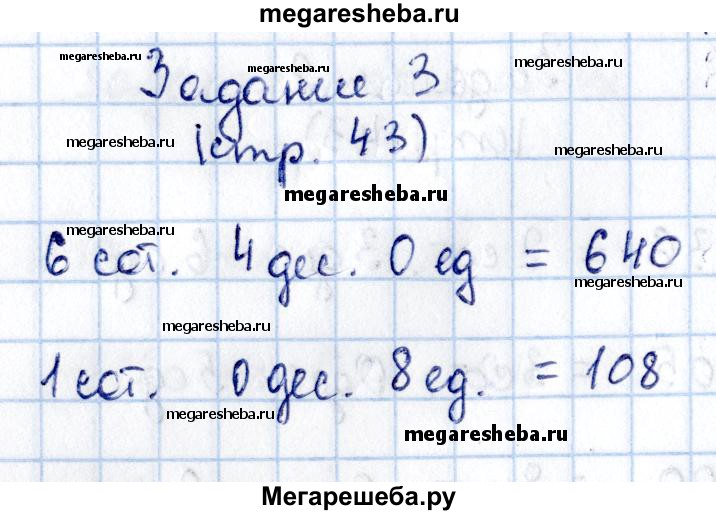 megaresheba.ru
megaresheba.ru megaresheba.ru megaresheba.ru
Задание 3
megaresheba.ru megaresheba.ru
(стр. 43)
megaresheba.ru
megaresheba.ru
6 сот. 4 дес. 0 ед = 640
megaresheba.ru
megaresheba.ru
1 сот. 0 дес. 8 ед. = 108
megaresheba.ru
megaresheba.ru
Мегарешеба.ру